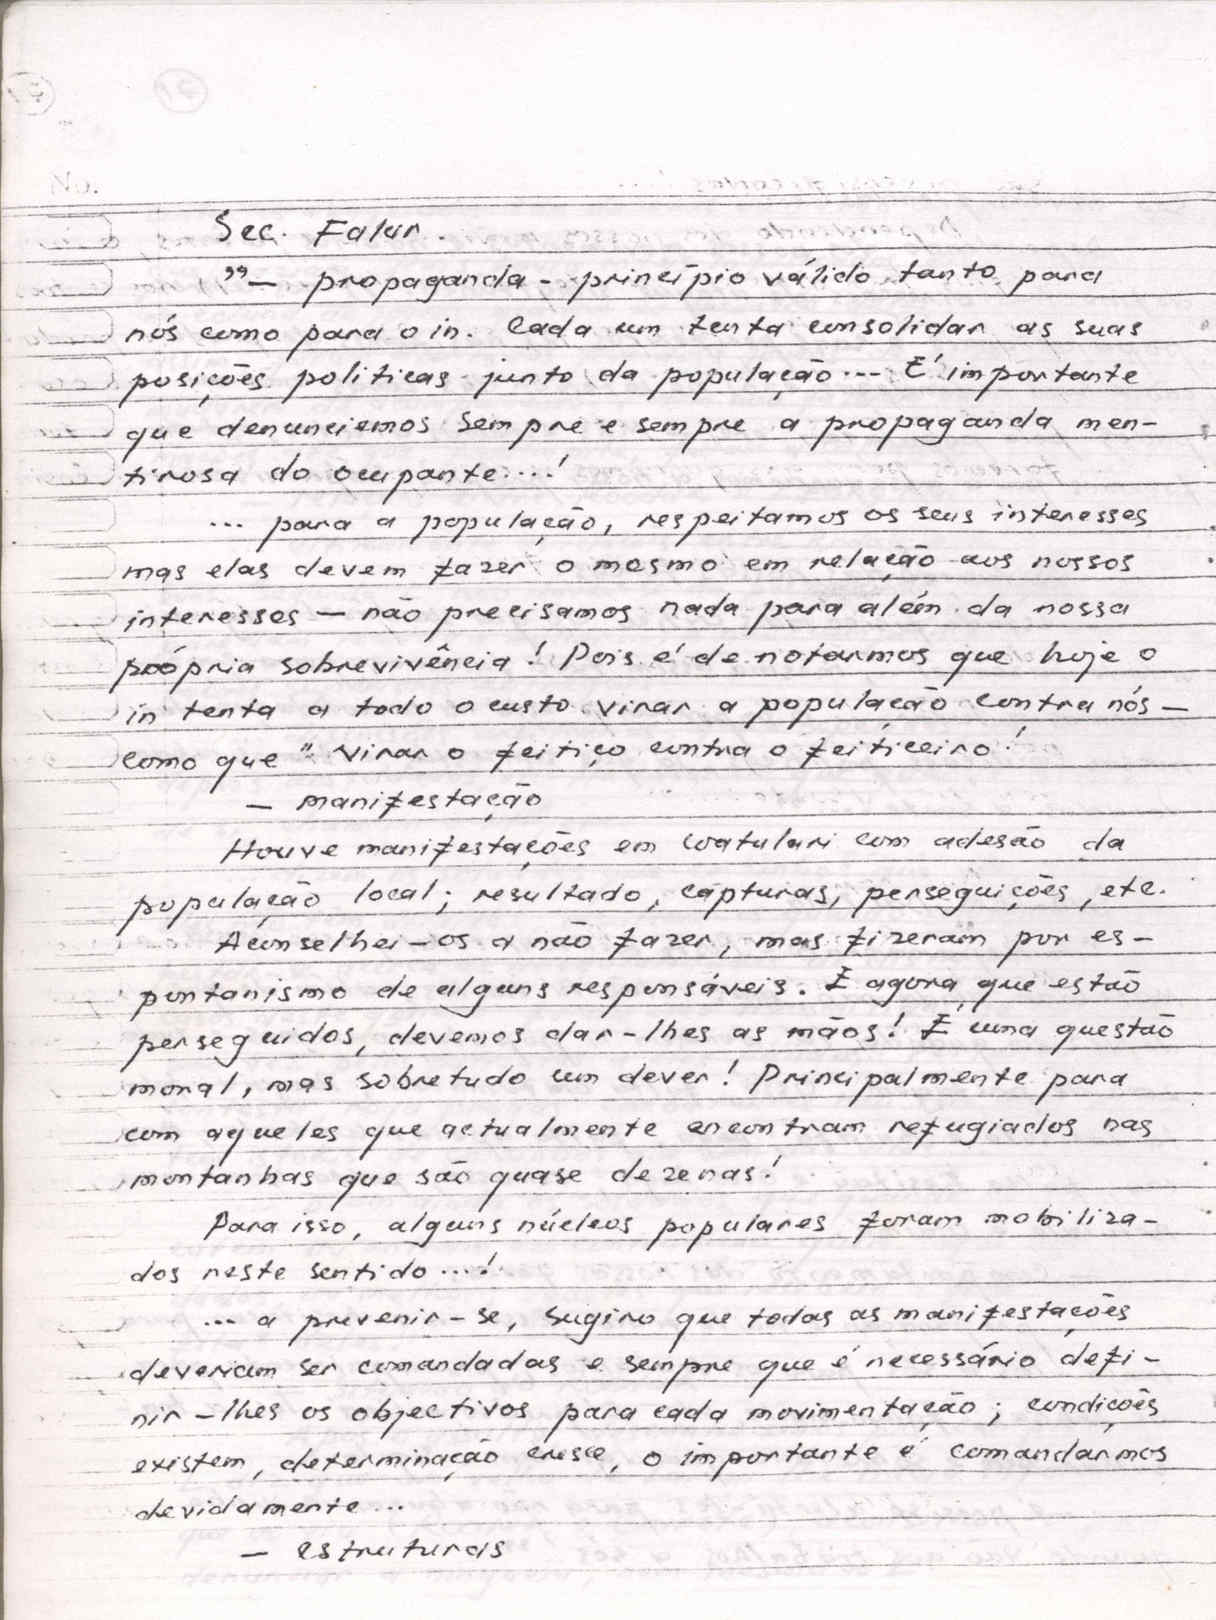 Sec. Falur.
"— propaganda - princípio válido tanto para
nós como para o in. Cada um tenta consolidar as suas
posições politicas junto da população... É importante
que denunciemos sempre e sempre a propaganda men-
tirosa do ocupante...!
... para a população, respeitamos os seus interesses
mas elas devem fazer o mesmo em relação aos nossos
interesses — não precisamos nada para além da nossa
própria sobrevivência! Pois é de notarmos que hoje o
in tenta a todo o custo virar a população contra nós —
como que " virar o feitiço contra o feiticeiro!
— manifestação
Houve manifestações em Watulari com adesão da
população local; resultado, capturas, perseguições, etc.
Aconselhei-os a não fazer, mas fizeram por es-
pontanismo de alguns responsáveis. E agora que estão
perseguidos, devemos dar-lhes as mãos! É uma questão
moral, mas sobretudo um dever! Principalmente para
com aqueles que actualmente encontram refugiados nas
montanhas que são quase dezenas!
Para isso, alguns núcleos populares foram mobiliza-
dos neste sentido...!
... a prevenir-se, sugiro que todas as manifestações
deveriam ser comandadas e sempre que é necessário defi-
nir-lhes os objectivos para cada movimentação; condições
existem, determinação cresce, o importante é comandarmos
devidamente...
— estruturas